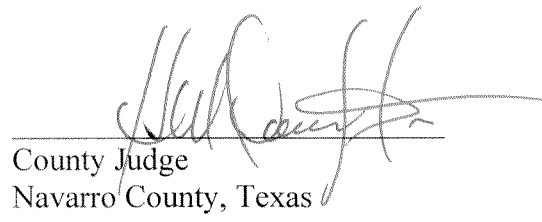 County Judge
Navarro County, Texas